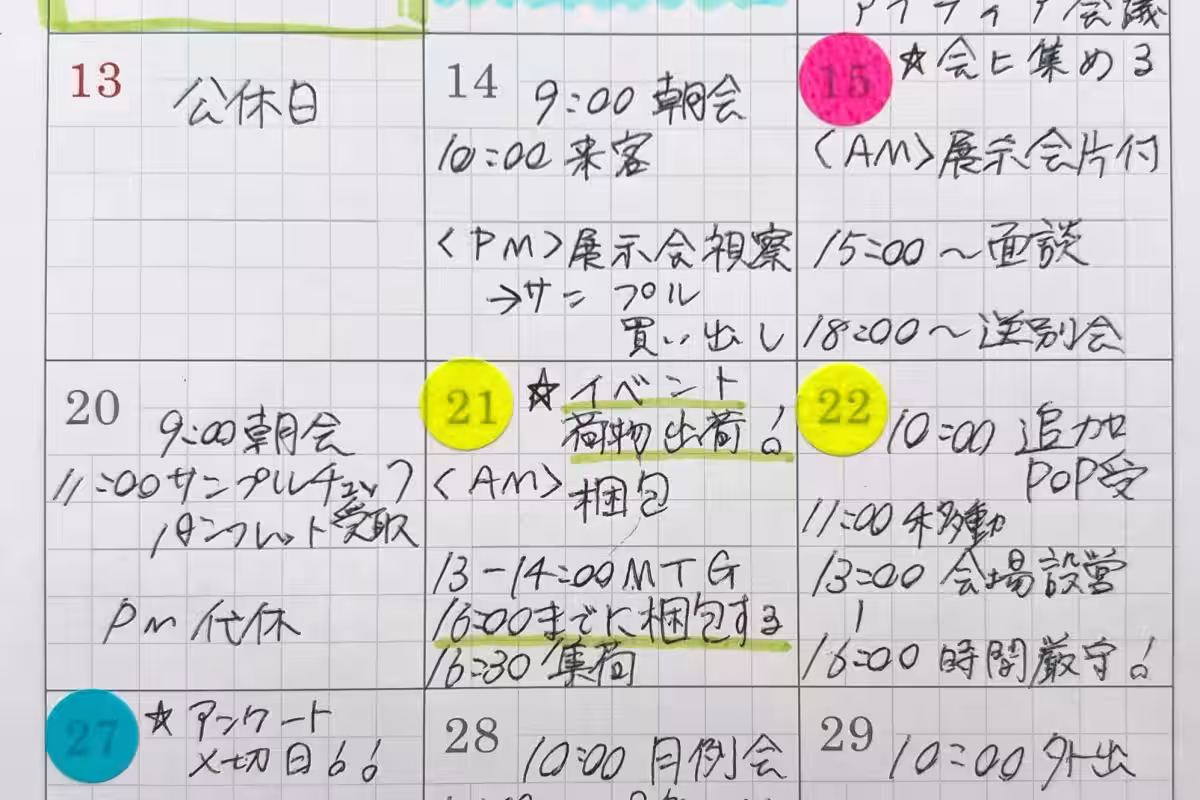 アイディア会議
13 公休日
14 9:00 朝会
10:00 来客
<PM>展示会視察
→サンプル
買い出し
15 ☆会ヒ集める
<AM>展示会片付
15:00～面談
18:00～送別会
20 9:00 朝会
11:00 サンプルチェック
パンフレット受取
PM 代休
21 ☆イベント
荷物出荷!
<AM>梱包
13-14:00 MTG
16:00までに梱包する
16:30 集荷
22 10:00 追加
POP受
11:00 移動
13:00 会場設営
16:00 時間厳守!
27 ☆アンケート
〆切日!!
28 10:00 月例会
29 10:00 外出